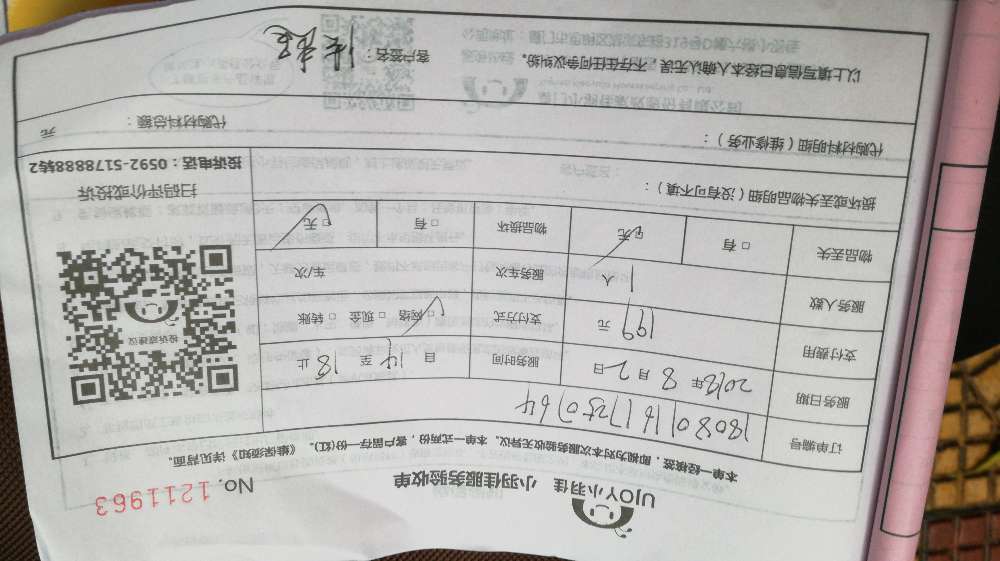 UJOY小羽佳 小羽佳服务验收单
No. 1211963
本单一经核签，即视为对本次服务验收无异议。本单一式两份，客户留存一份(红)。《维保须知》详见背面。
订单编号 180801617250764
服务日期 2018年8月2日 服务时间 自 14 至 18 止
支付费用 199 元 支付方式 □网络 □现金 □转账
服务人数 1 人 服务车次 车/次
物品丢失 □有 □无 物品损坏 □有 □无
投诉或建议
扫码评价或投诉
投诉电话：0592-5178888转2
损坏或丢失物品明细（没有可不填）：
代购材料明细（维修业务）：
代购材料总额： 元
以上填写信息已经本人确认无误，不存在任何争议纠纷。
客户签名：